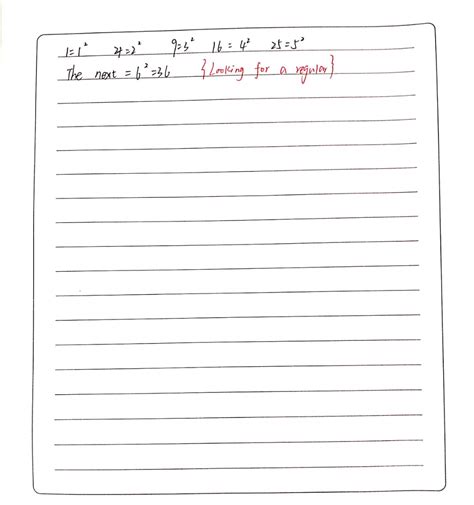 1=1² 4=2² 9=3² 16=4² 25=5²
The next =6²=36 {Looking for a regular}